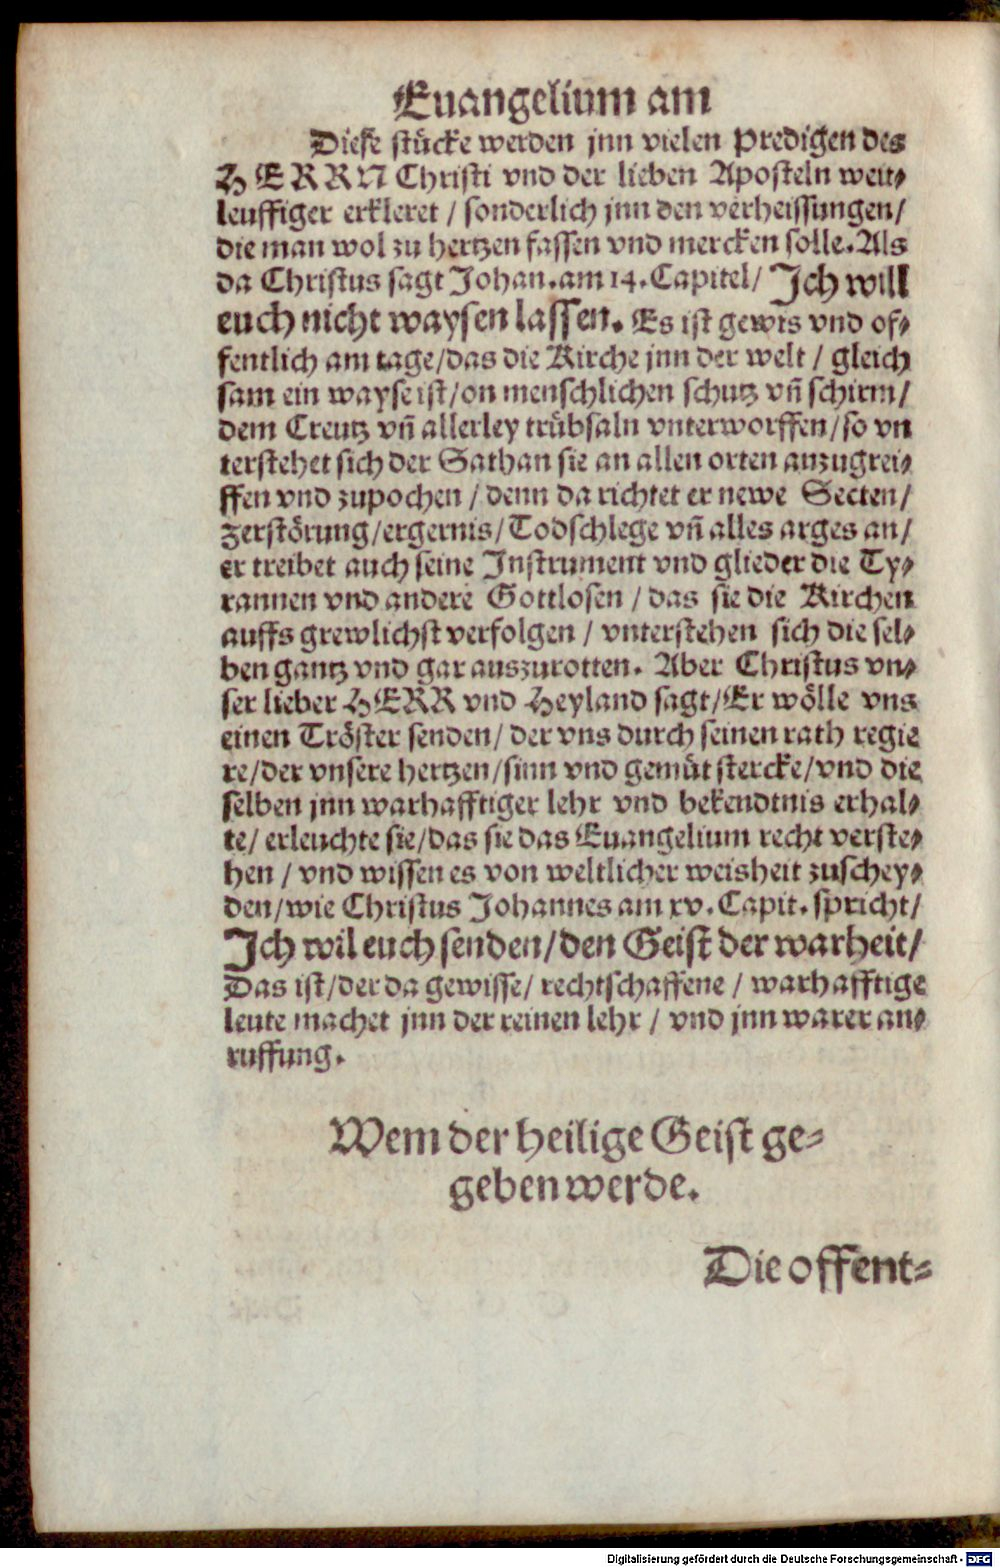 Euangelium am
Diese stücke werden jnn vielen Predigen des
HERRN Christi vnd der lieben Aposteln weit⸗
leuffiger erkleret / sonderlich jnn den verheissungen/
die man wol zu hertzen fassen vnd mercken solle. Als
da Christus sagt Johan. am 14. Capitel/ Jch will
euch nicht waysen lassen. Es ist gewis vnd of⸗
fentlich am tage/das die Kirche jnn der welt / gleich
sam ein wayse ist/on menschlichen schutz vñ schirm/
dem Creutz vñ allerley trübsaln vnterworffen/so vn
terstehet sich der Sathan sie an allen orten anzugrei⸗
ffen vnd zupochen / denn da richtet er newe Secten/
zerstörung/ergernis/Todschlege vñ alles arges an/
er treibet auch seine Instrument vnd glieder die Ty⸗
rannen vnd andere Gottlosen / das sie die Kirchen
auffs grewlichst verfolgen / vnterstehen sich die sel⸗
ben gantz vnd gar auszurotten. Aber Christus vn⸗
ser lieber HERR vnd Heyland sagt/Er wölle vns
einen Tröster senden/ der vns durch seinen rath regie
re/der vnsere hertzen/sinn vnd gemüt stercke/vnd die
selben jnn warhafftiger lehr vnd bekendtnis erhal⸗
te/ erleuchte sie/das sie das Euangelium recht verste⸗
hen / vnd wissen es von weltlicher weisheit zuschey⸗
den/wie Christus Johannes am xv. Capit. spricht/
Jch wil euch senden/den Geist der warheit/
Das ist/der da gewisse/ rechtschaffene / warhafftige
leute machet jnn der reinen lehr / vnd jnn warer an⸗
ruffung.
Wem der heilige Geist ge⸗
geben werde.
Die offent⸗
Digitalisierung gefördert durch die Deutsche Forschungsgemeinschaft - DFG